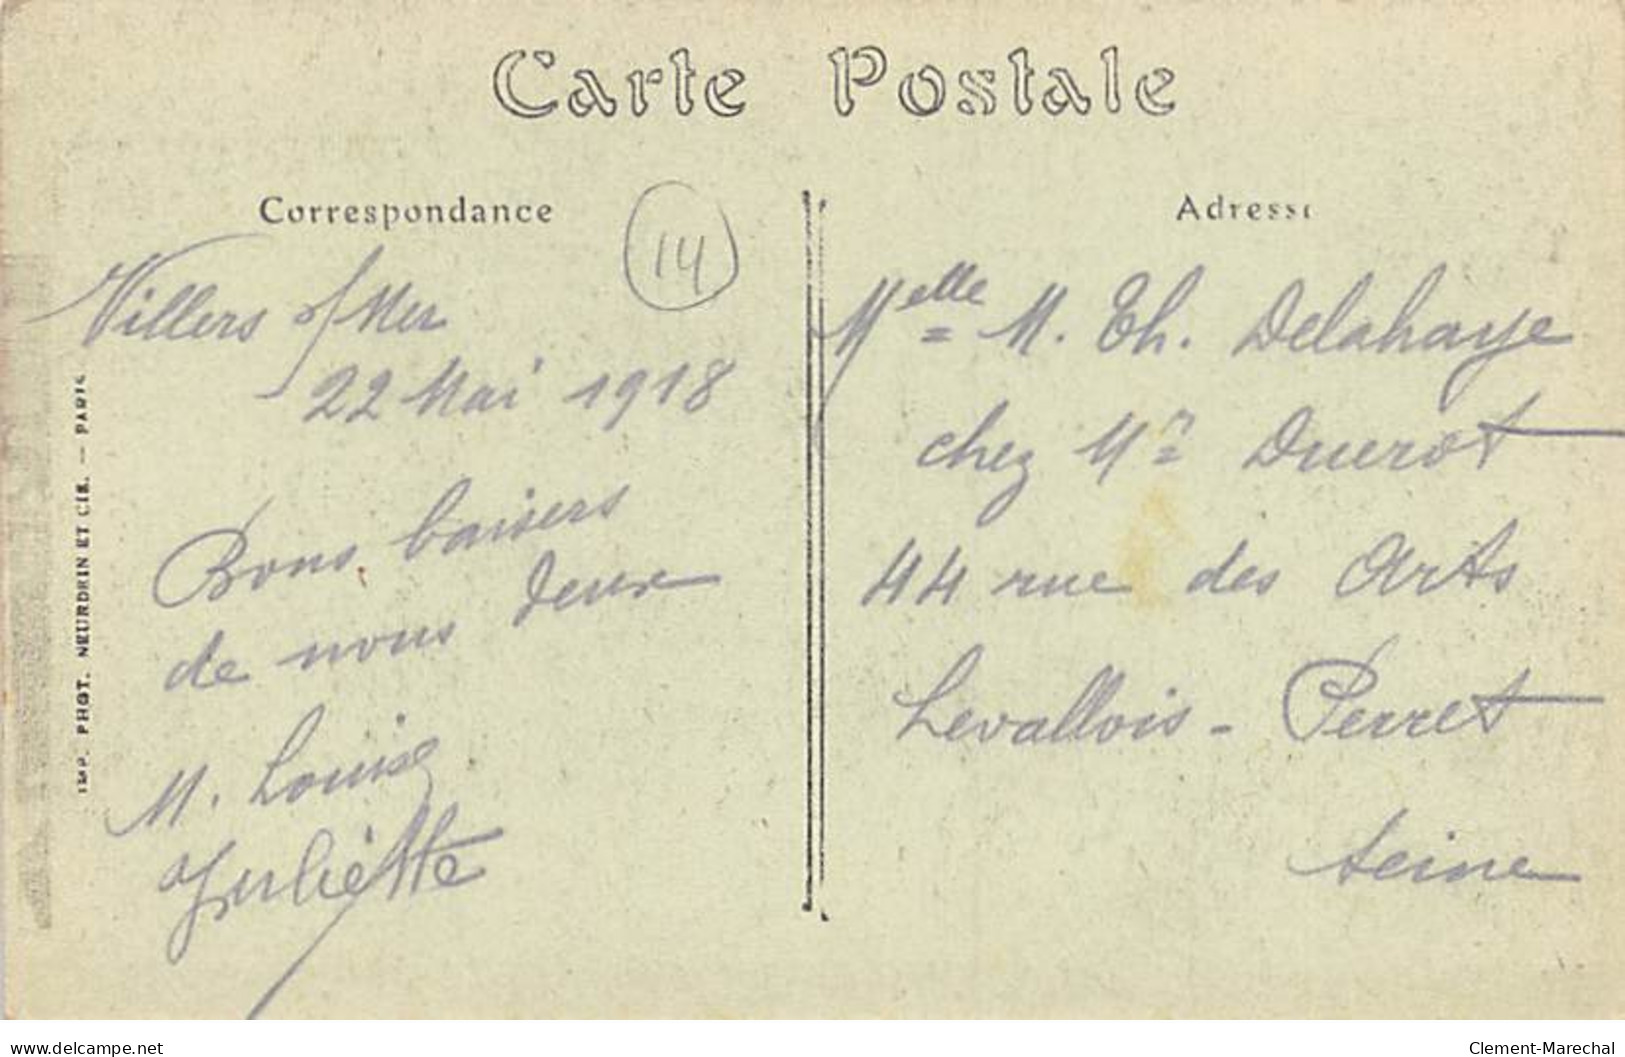 Carte Postale
Correspondance
14
Villers s/Mer
22 Mai 1918
Bons baisers
de nous deux
M. Louise
Juliette
Adresse
Melle M. Th. Delahaye
chez Mr Duerot
44 rue des Arts
Levallois - Perret
Seine
IMP. PHOT. NEURDRIN ET CIE. — PARIS
delcampe.net
Clement-Marechal